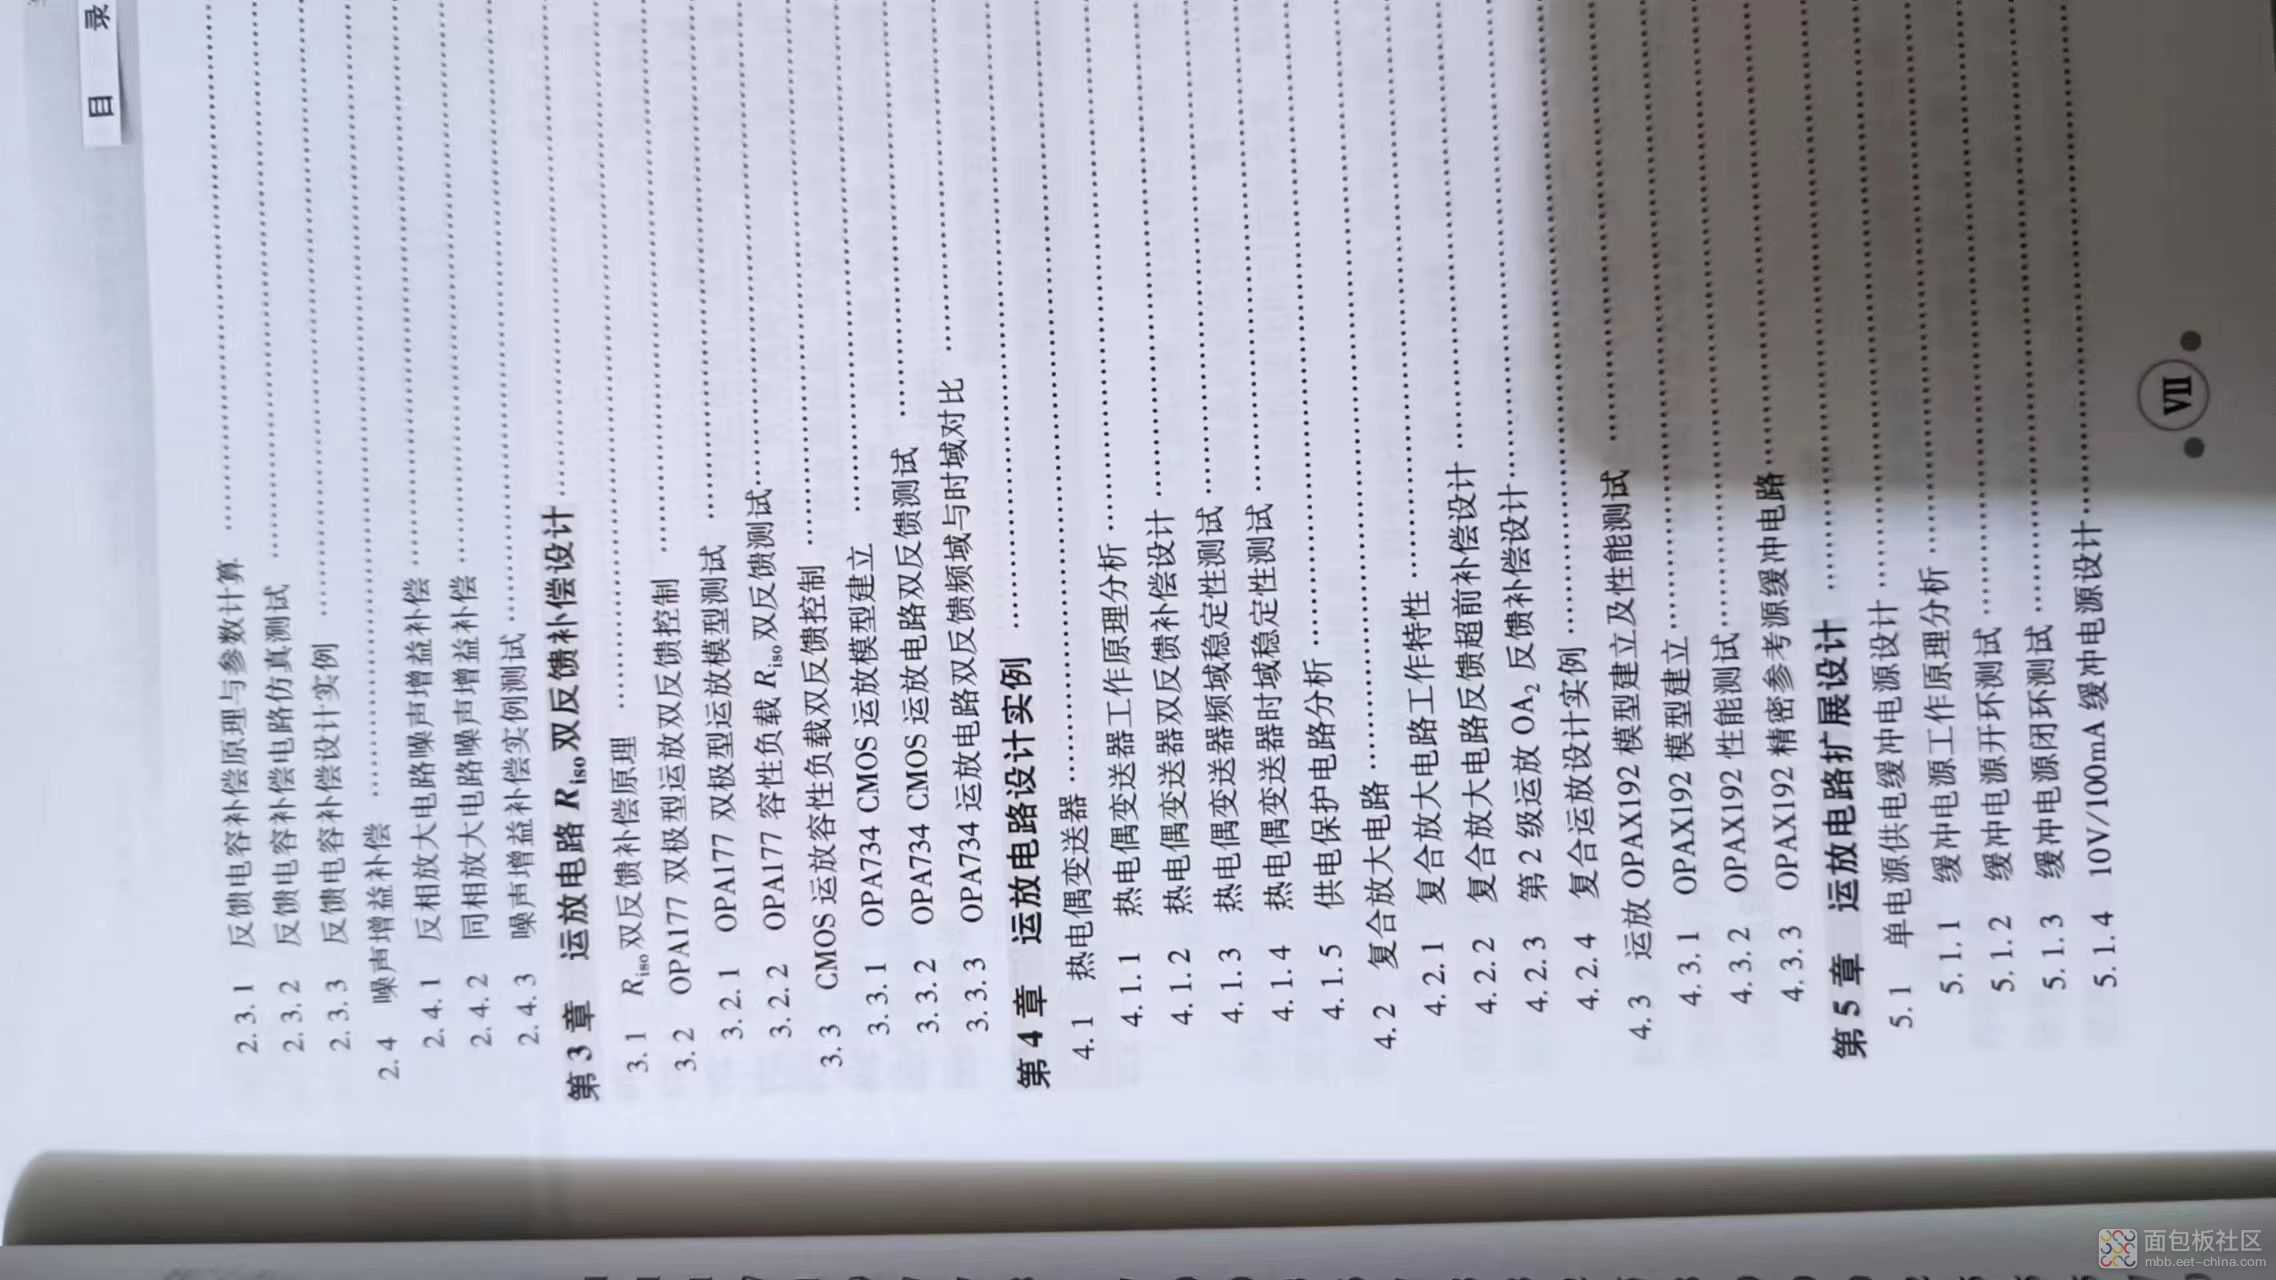 目 录
2.3.1 反馈电容补偿原理与参数计算
2.3.2 反馈电容补偿电路仿真测试
2.3.3 反馈电容补偿设计实例
2.4 噪声增益补偿
2.4.1 反相放大电路噪声增益补偿
2.4.2 同相放大电路噪声增益补偿
2.4.3 噪声增益补偿实例测试
第3章 运放电路Riso双反馈补偿设计
3.1 Riso双反馈补偿原理
3.2 OPA177双极型运放双反馈控制
3.2.1 OPA177双极型运放模型测试
3.2.2 OPA177容性负载Riso双反馈测试
3.3 CMOS运放容性负载双反馈控制
3.3.1 OPA734 CMOS运放模型建立
3.3.2 OPA734 CMOS运放电路双反馈测试
3.3.3 OPA734运放电路双反馈频域与时域对比
第4章 运放电路设计实例
4.1 热电偶变送器
4.1.1 热电偶变送器工作原理分析
4.1.2 热电偶变送器双反馈补偿设计
4.1.3 热电偶变送器频域稳定性测试
4.1.4 热电偶变送器时域稳定性测试
4.1.5 供电保护电路分析
4.2 复合放大电路
4.2.1 复合放大电路工作特性
4.2.2 复合放大电路反馈超前补偿设计
4.2.3 第2级运放OA2反馈补偿设计
4.2.4 复合运放设计实例
4.3 运放OPAX192模型建立及性能测试
4.3.1 OPAX192模型建立
4.3.2 OPAX192性能测试
4.3.3 OPAX192精密参考源缓冲电路
第5章 运放电路扩展设计
5.1 单电源供电缓冲电源设计
5.1.1 缓冲电源工作原理分析
5.1.2 缓冲电源开环测试
5.1.3 缓冲电源闭环测试
5.1.4 10V/100mA缓冲电源设计
Ⅶ
面包板社区
mbb.eet-china.com